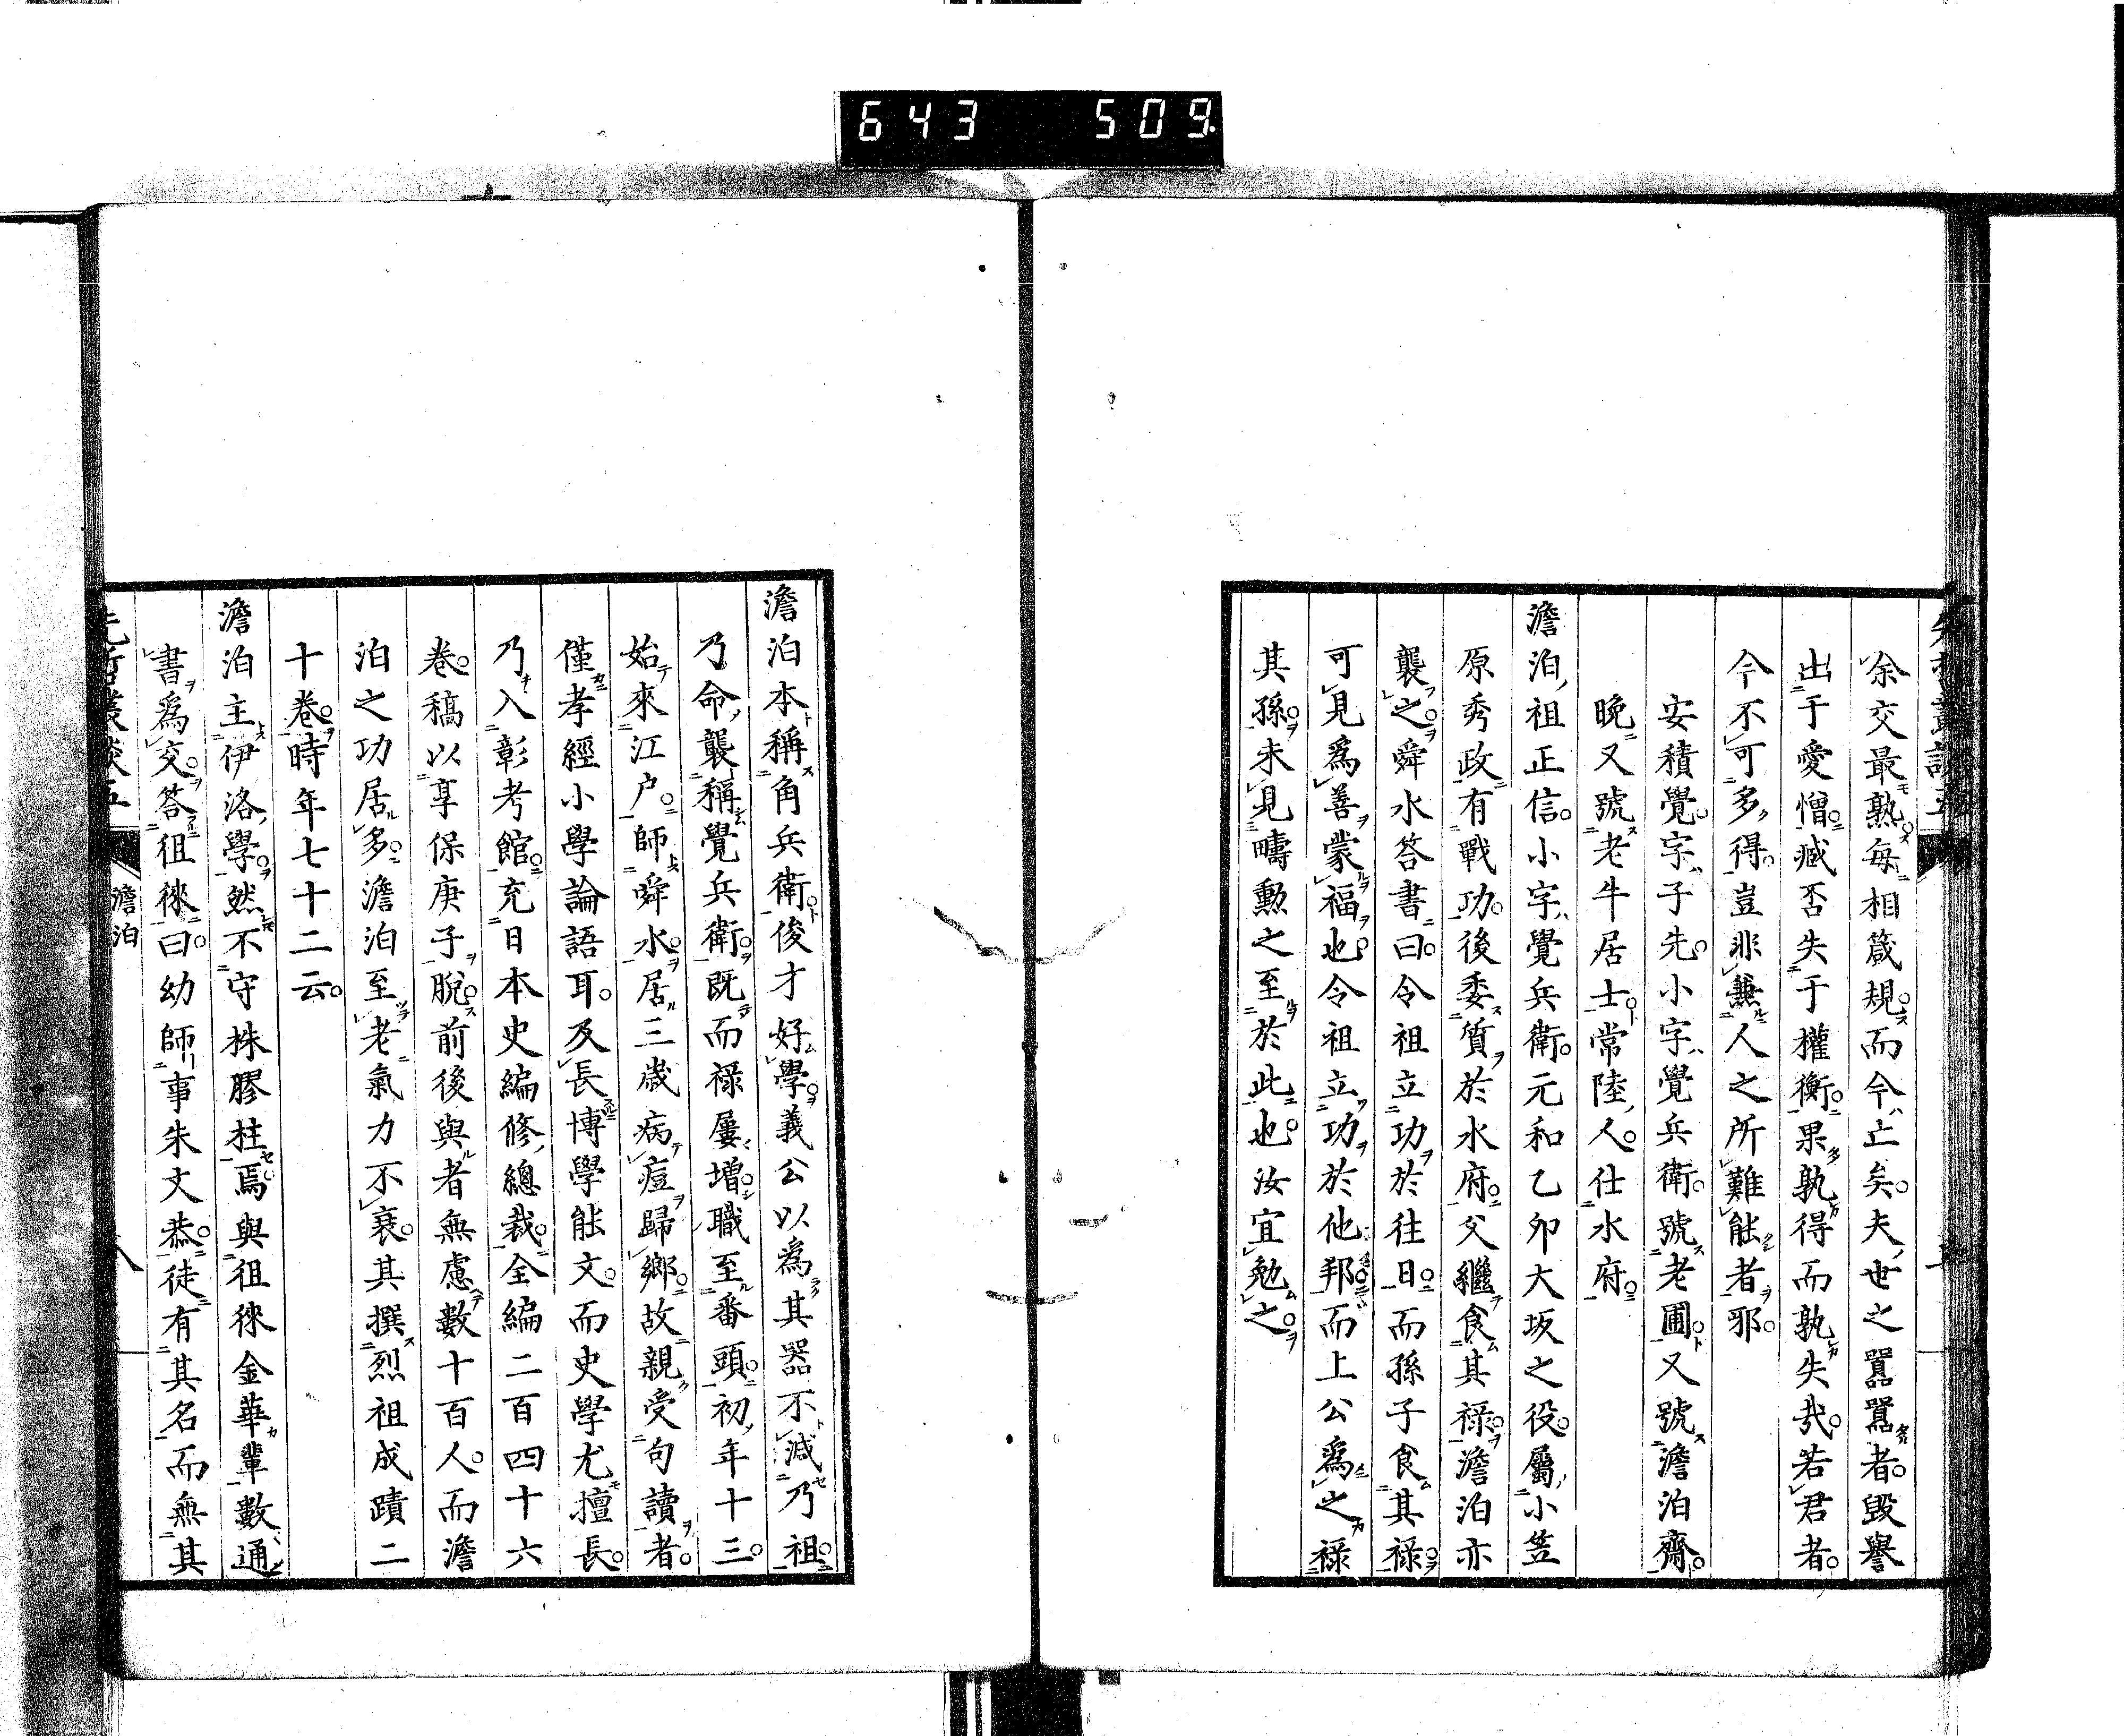 643 509
余交最熟每相箴規而今亡矣夫世之囂囂者毀譽
出于愛憎臧否失于權衡果孰得而孰失哉若君者
今不可多得豈非兼人之所難能者邪
安積覺字子先小字覺兵衛號老圃又號澹泊齋
晚又號老牛居士常陸人仕水府
澹泊祖正信小字覺兵衛元和乙卯大坂之役屬小笠
原秀政有戰功後委質於水府父繼食其祿澹泊亦
襲之舜水答書曰令祖立功於往日而孫子食其祿
可見爲善蒙福也令祖立功於他邦而上公爲之祿
其孫未見疇勲之至於此也汝宜勉之
澹泊本稱角兵衛俊才好學義公以爲其器不減乃祖
乃命襲稱覺兵衛既而祿屢增職至番頭初年十三
始來江户師舜水居三歲病痘歸鄉故親受句讀者
僅孝經小學論語耳及長博學能文而史學尤擅長
乃入彰考館充日本史編修總裁全編二百四十六
卷稿以享保庚子脫前後與者無慮數十百人而澹
泊之功居多澹泊至老氣力不衰其撰烈祖成蹟二
十卷時年七十二云
澹泊主伊洛學然不守株膠柱焉與徂徠金華輩數通
書爲交答徂徠曰幼師事朱文恭徒有其名而無其
先哲叢談五 澹泊 八